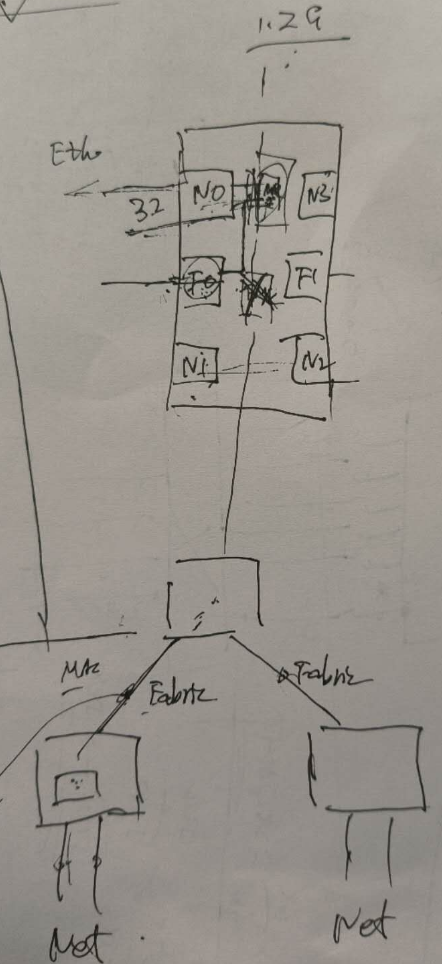 1.2G
Eth
N0
N3
32
F0
F1
N1
N2
MAC
Fabric
Fabric
Net
Net